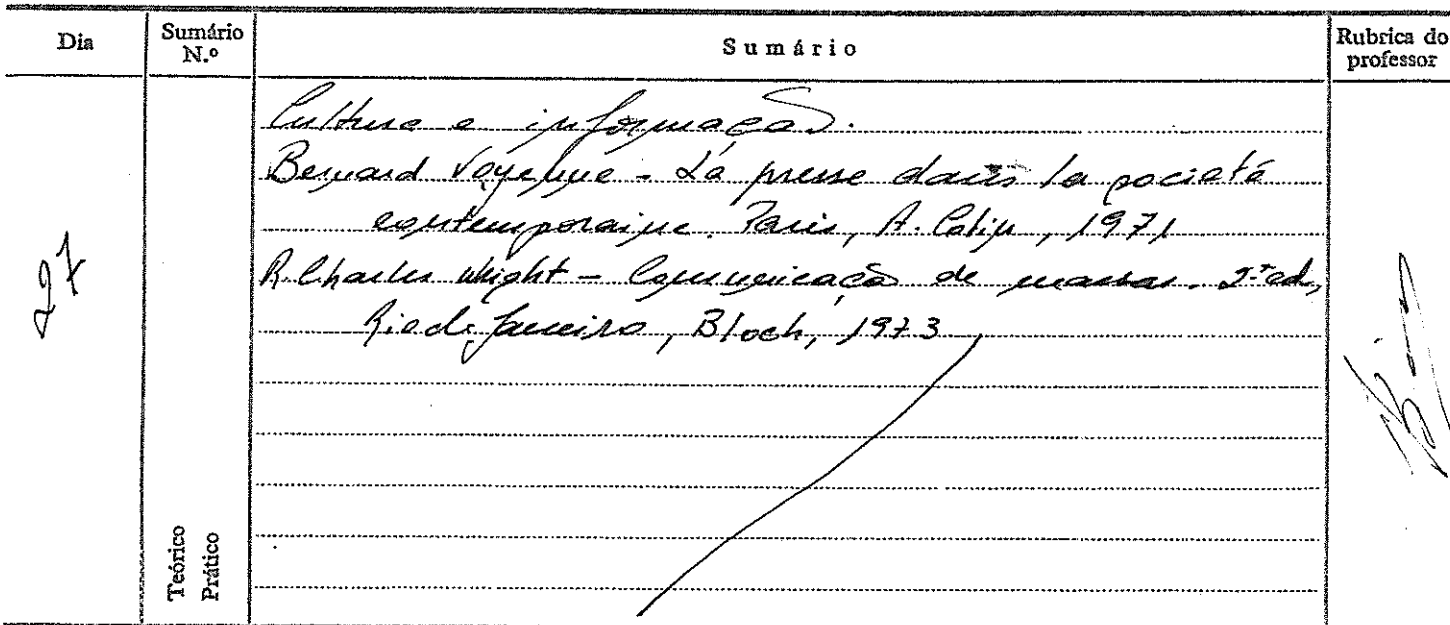 Dia
Sumário
N.º
Sumário
Rubrica do
professor
27
Cultura e informação.
Bernard Voyenne - La presse dans la société
contemporaine. Paris, A. Colin, 1971
R. Charles Wright - Comunicação de massas. 2.ª ed,
Rio de Janeiro, Bloch, 1973
Teórico
Prático